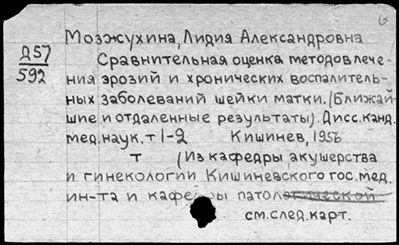 6
Мозжухина, Лидия Александровна
Д57
592
Сравнительная оценка методов лече-
ния эрозий и хронических воспалитель-
ных заболеваний шейки матки. (Ближай-
шие и отдаленные результаты). Дисс. канд.
мед. наук. т 1-2 Кишинев, 1956
т (Из кафедры акушерства
и гинекологии Кишиневского гос. мед.
ин-та и кафедры патологической
см. след. карт.